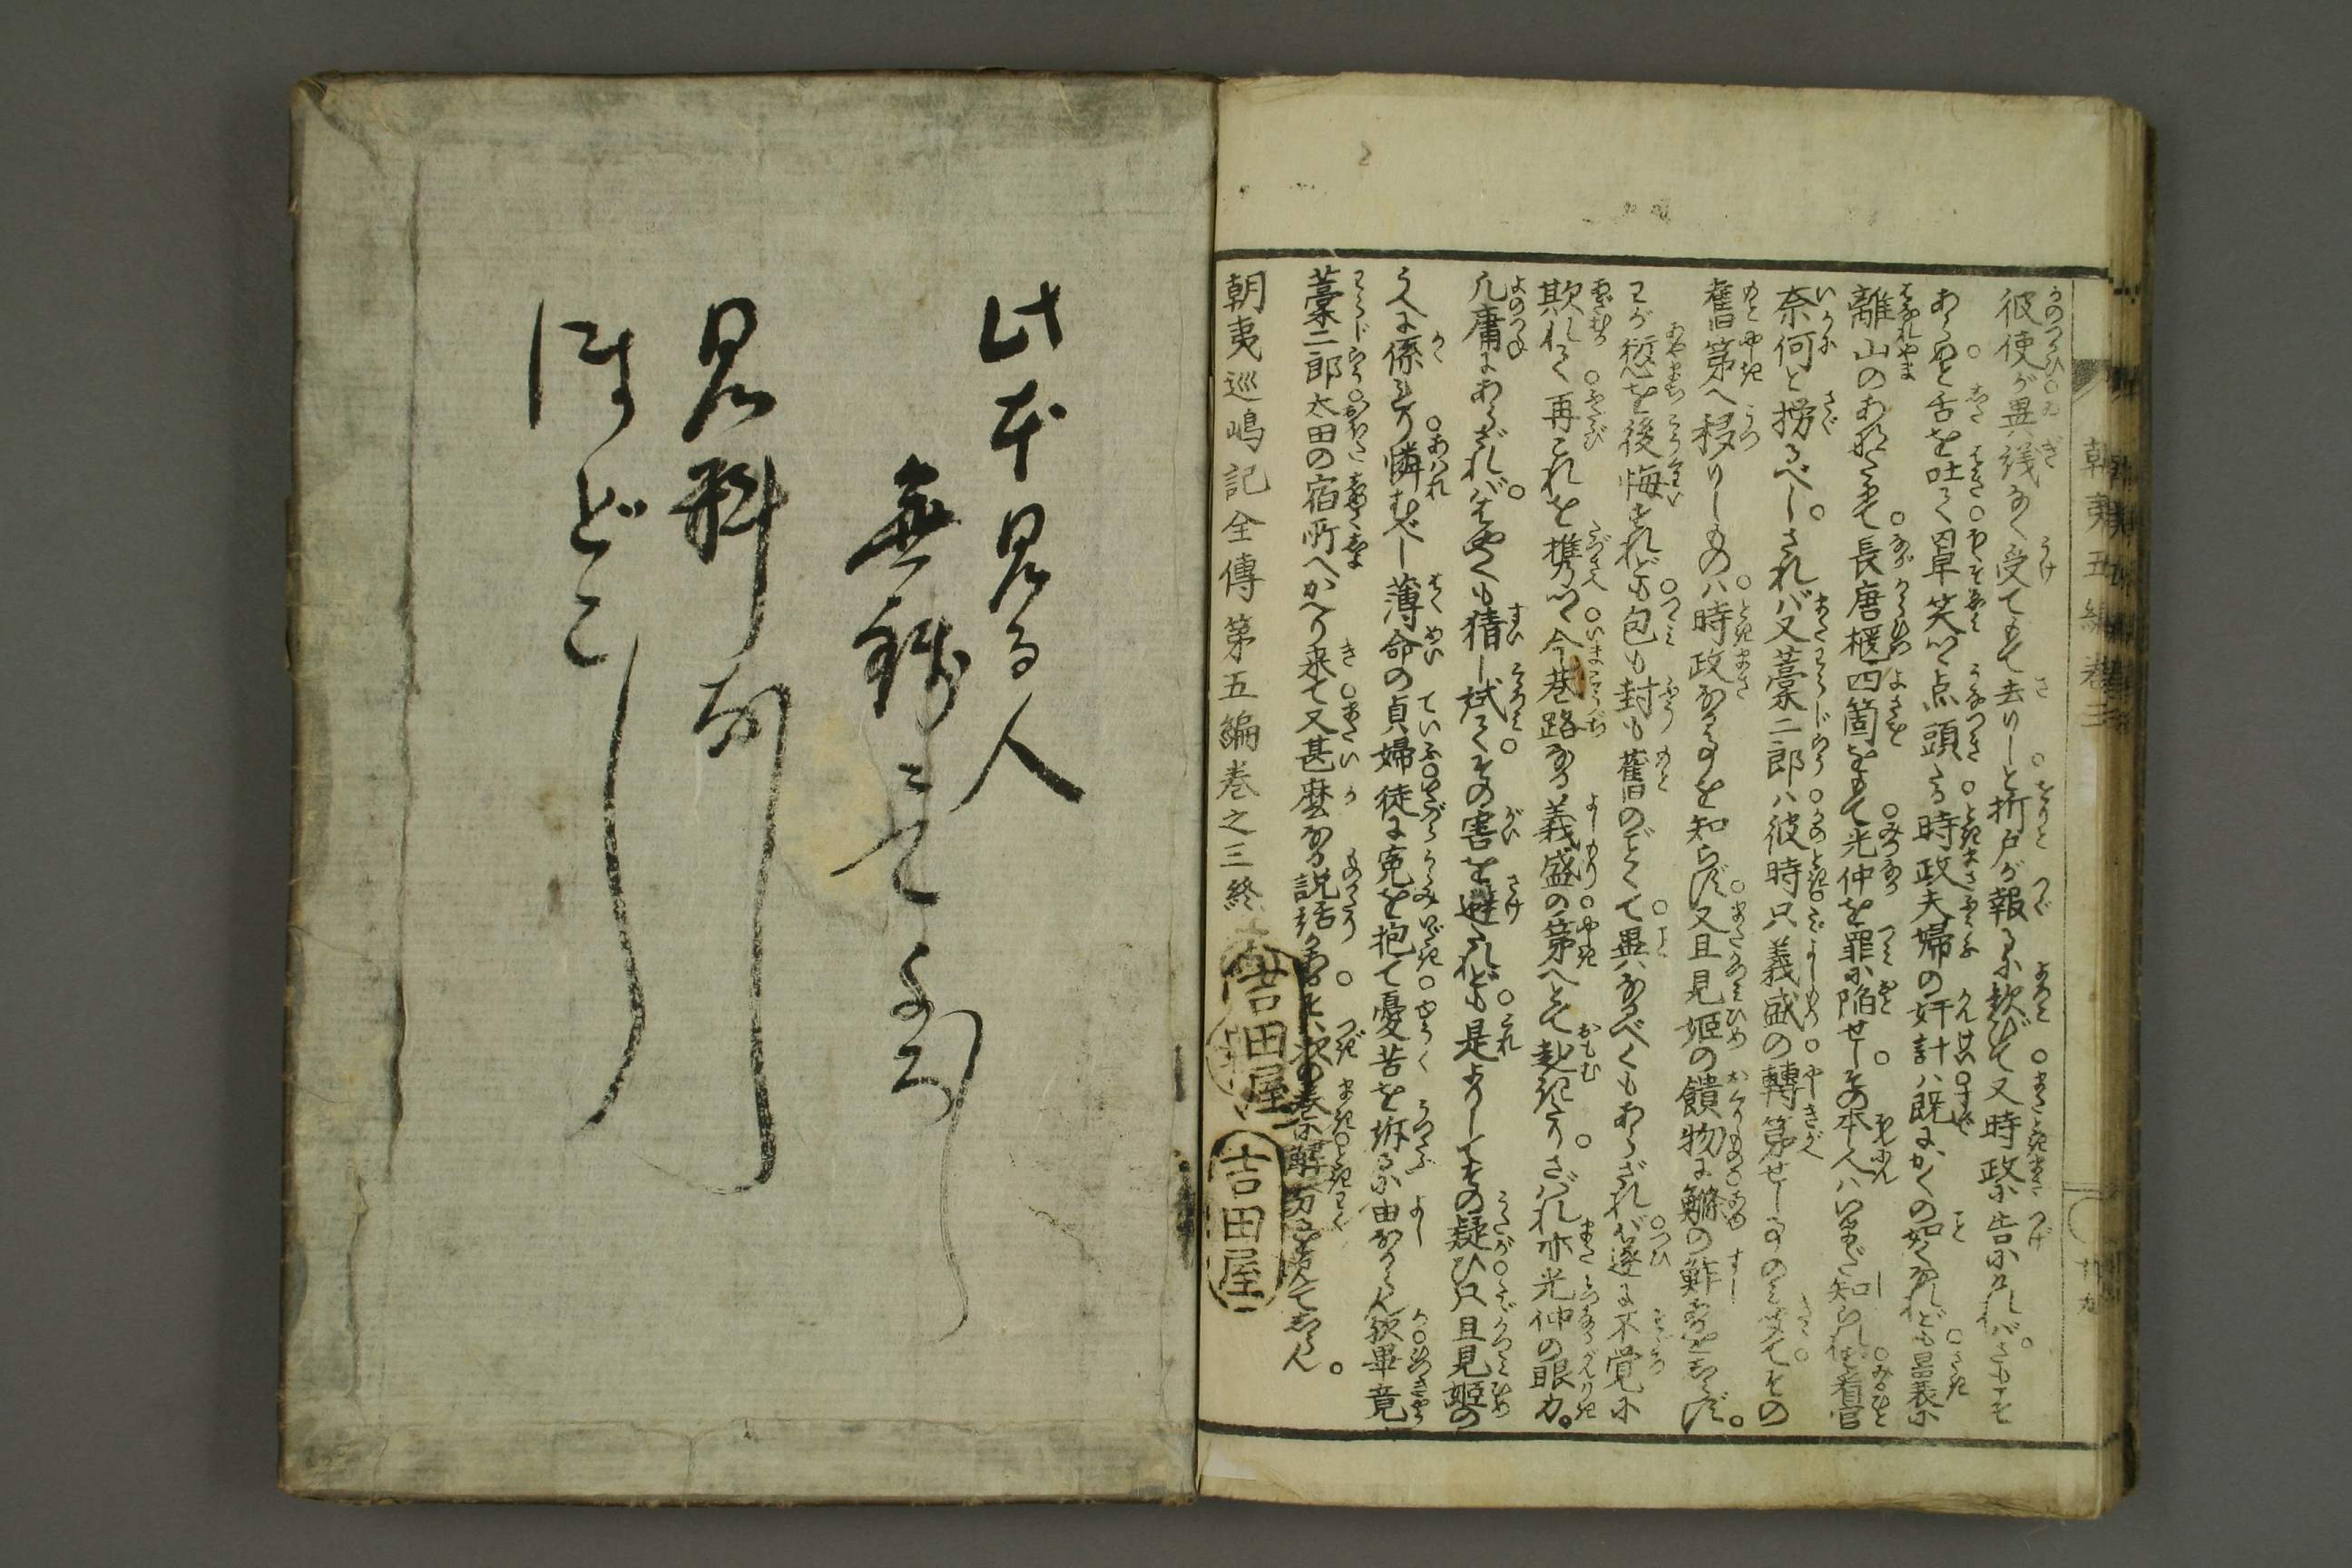 朝夷五編巻三
彼使が異儀なく受てもて去りしと折戸が報るに歓びて又時政に告にければさもこそ
あらめと舌を吐て冷笑つゝ点頭たる時政夫婦の奸計ハ既にかくの如くなれども囂表に
離山のあなたにて長唐櫃四箇をもて光仲を罪に陥せしその本人ハいまだ知られず看官
奈何と撈るべしされバ又藁二郎ハ彼時只義盛の轉第せし事のミ聞てその
舊第へ移りしものハ時政なる事を知らず又且見姫の饋物に鰷の鮓あるをしらず
わが愆を後悔すれども包も封も舊のごとくて異なるべくもあらざれバ遂に不覚に
欺れて再これを携つゝ今巷路なる義盛の第へとて赴きたりさバれ亦光仲の眼力
凡庸にあらざれバはやくも猜し試てその害を避たれども是よりしてその疑ひ只且見姫の
うへに係れり憐むべし薄命の貞婦徒に寃を抱て憂苦を訴るに由なからん歟畢竟
藁二郎太田の宿所へかへり来て又甚麼なる説話かある そハ次の巻に解分るを見てしらん
朝夷巡嶋記全傳第五編巻之三終
吉田屋
吉田屋
此本見る人
無銭ニて
見料
ほどこ